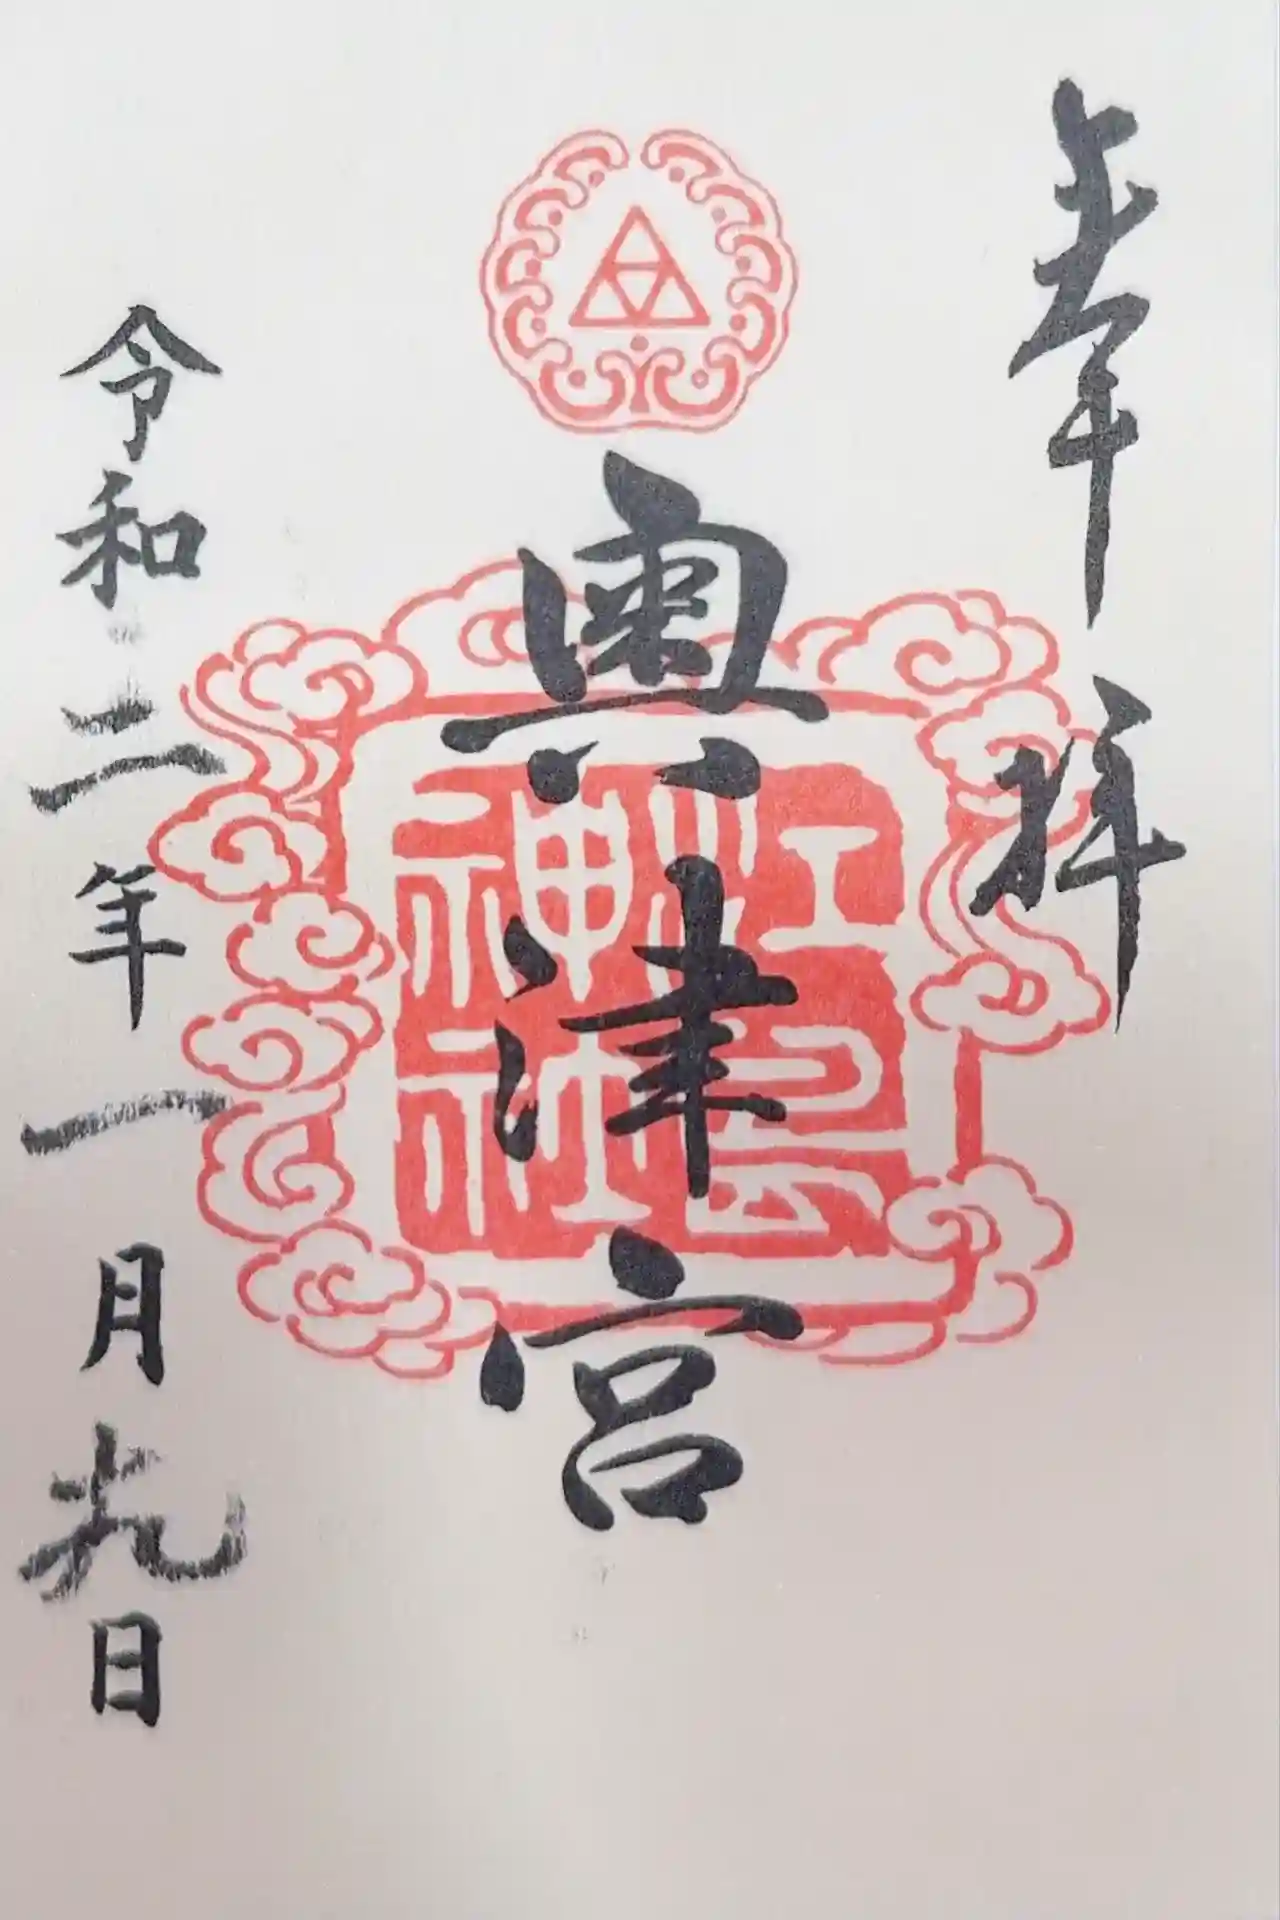 奉拝
奥津宮
江島神社
令和二年一月九日